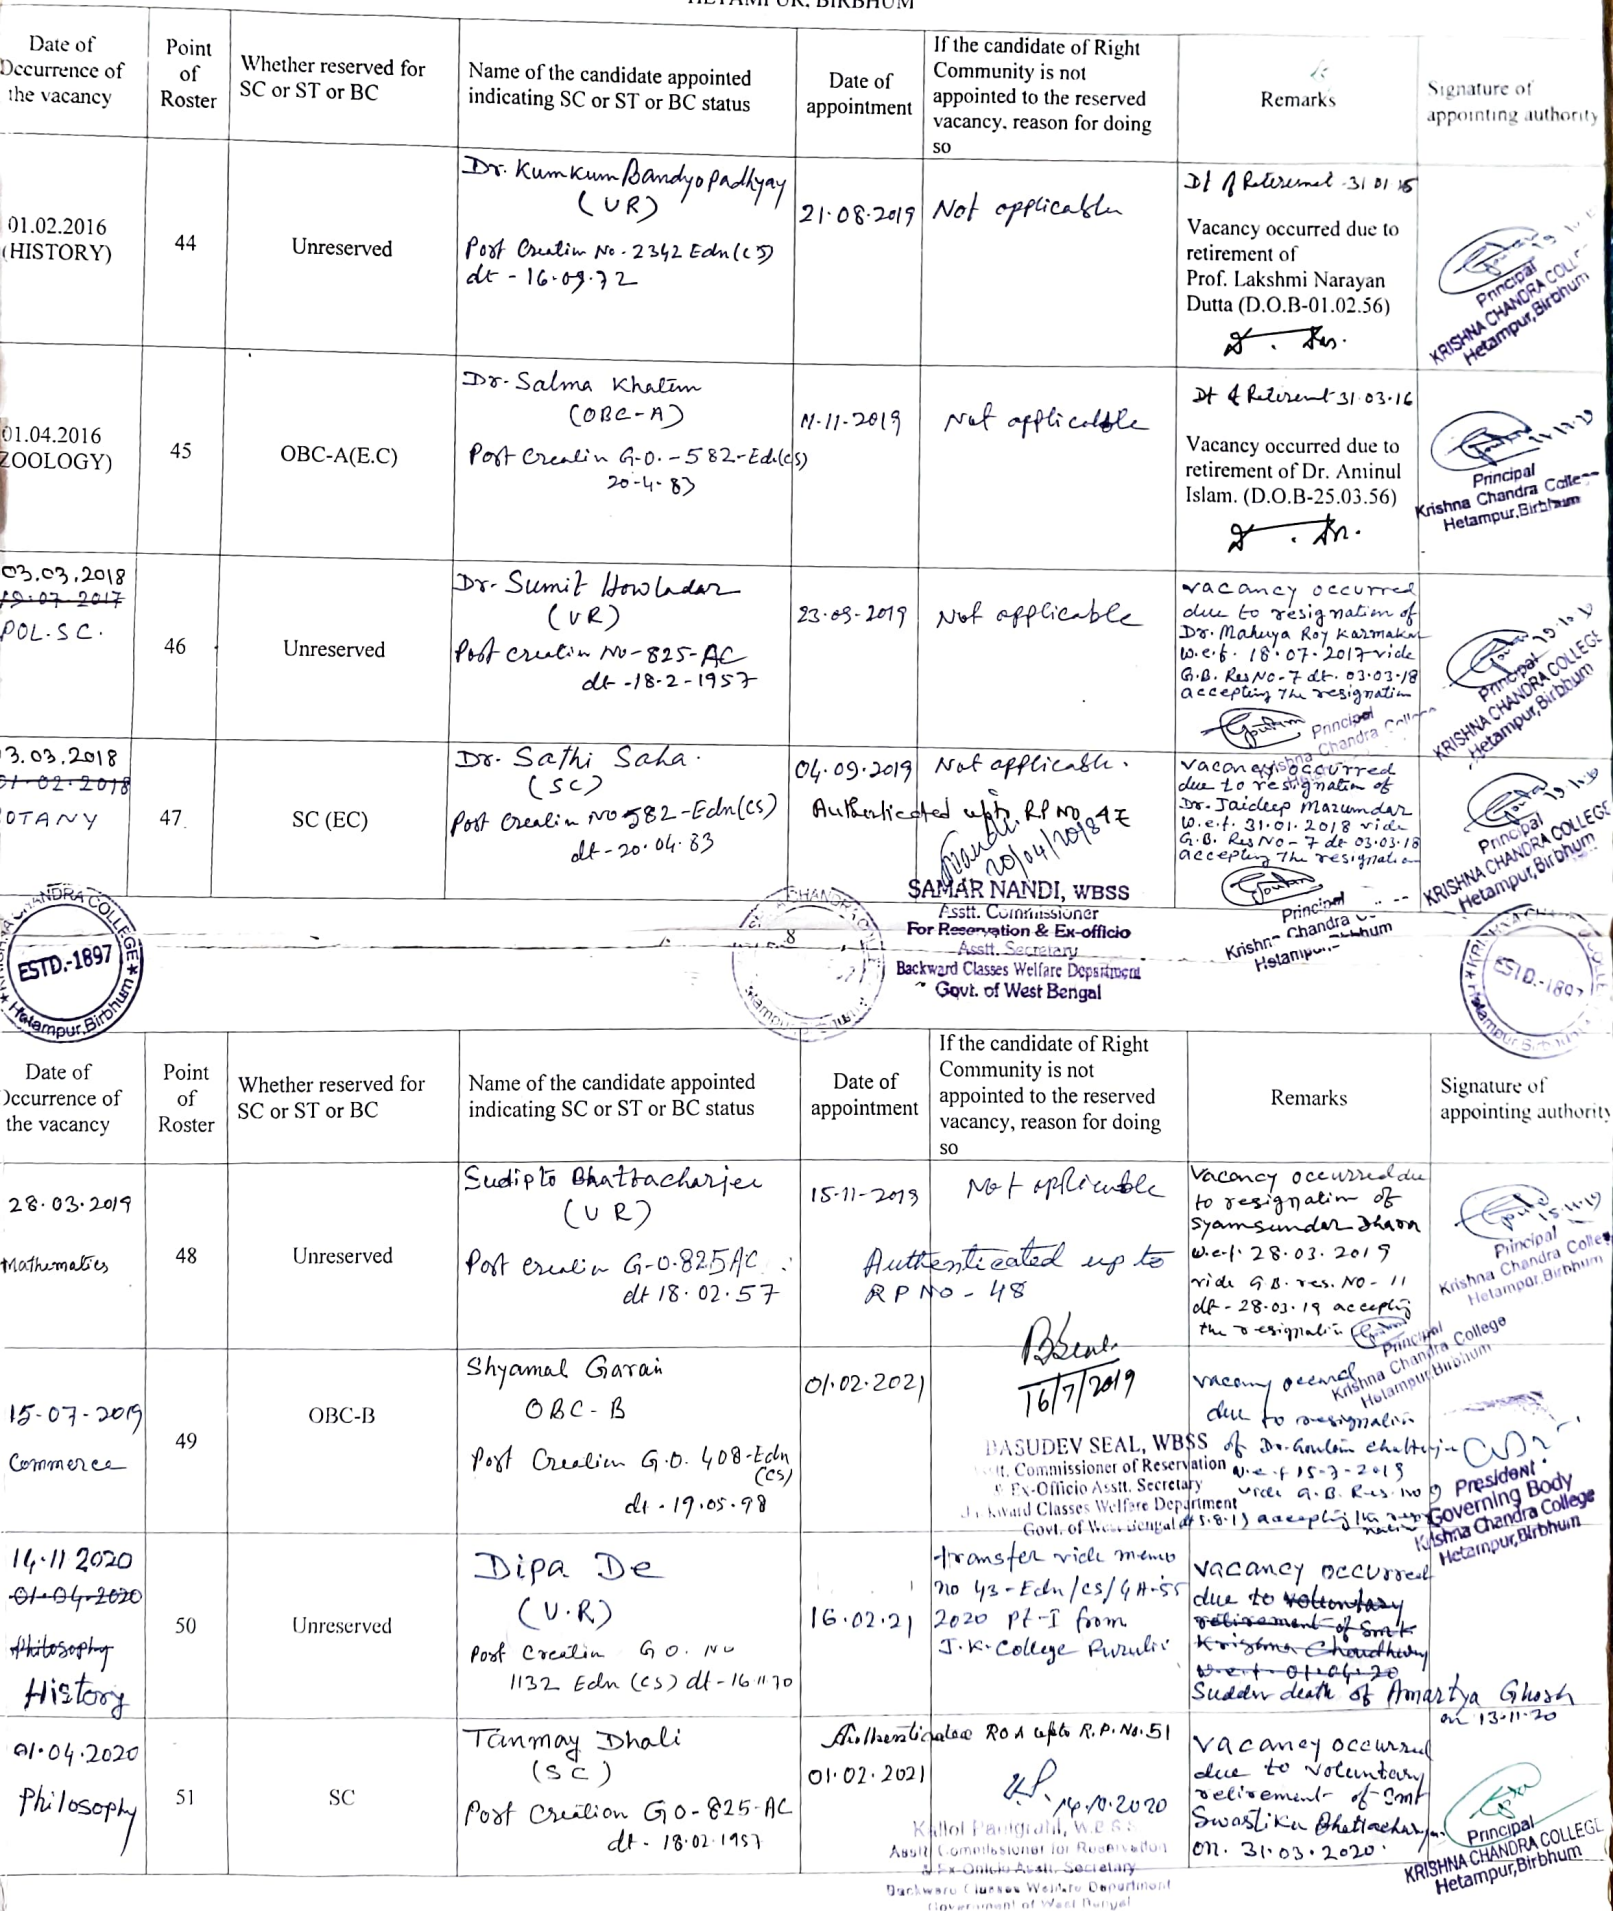 HETAMPUR, BIRBHUM
Date of
Occurrence of
the vacancy
Point
of
Roster
Whether reserved for
SC or ST or BC
Name of the candidate appointed
indicating SC or ST or BC status
Date of
appointment
If the candidate of Right
Community is not
appointed to the reserved
vacancy, reason for doing
so
Remarks
Signature of
appointing authority
01.02.2016
(HISTORY)
44
Unreserved
Dr. Kumkum Bandyopadhyay
(UR)
Post Creation No. 2342 Edn (CS)
dt - 16.09.72
21.08.2019
Not applicable
Dt of Retirement - 31 01 16
Vacancy occurred due to
retirement of
Prof. Lakshmi Narayan
Dutta (D.O.B-01.02.56)
Principal
KRISHNA CHANDRA COLL
Hetampur, Birbhum
01.04.2016
ZOOLOGY)
45
OBC-A(E.C)
Dr. Salma Khatun
(OBC-A)
Post Creation G.O. - 582-Edn(CS)
20-4-83
11-11-2019
Not applicable
Dt of Retirement 31.03.16
Vacancy occurred due to
retirement of Dr. Aminul
Islam. (D.O.B-25.03.56)
Principal
Krishna Chandra College
Hetampur, Birbhum
03.03.2018
19.07.2017
POL.SC.
46
Unreserved
Dr. Sumit Howladar
(UR)
Post creation No-825-AC
dt -18-2-1957
23-09-2019
Not applicable
vacancy occurred
due to resignation of
Dr. Mahuya Roy Karmakar
w.e.f. 18.07.2017 vide
G.B. Res No-7 dt. 03.03.18
accepting the resignation
Principal
Chandra
Principal
KRISHNA CHANDRA COLLEGE
Hetampur, Birbhum
3.03.2018
01-02-2018
OTANY
47
SC (EC)
Dr. Sathi Saha.
(SC)
Post Creation NO 582-Edn(CS)
dt-20.04.83
04.09.2019
Not applicable.
Authenticated upto RP NO 47
20/04/2018
SAMAR NANDI, WBSS
Asstt. Commissioner
For Reservation & Ex-officio
Asstt. Secretary
Backward Classes Welfare Department
Govt. of West Bengal
vacancy occurred
due to resignation of
Dr. Jaideep Mazumdar
w.e.f. 31.01.2018 vide
G.B. Res No-7 dt 03.03.18
accepting the resignation
Principal
Krishna Chandra
Hetampur
Principal
KRISHNA CHANDRA COLLEGE
Hetampur, Birbhum
CHANDRA COLLEGE
ESTD.-1897
Hetampur, Birbhum
8
ESTD.-1897
Date of
Occurrence of
the vacancy
Point
of
Roster
Whether reserved for
SC or ST or BC
Name of the candidate appointed
indicating SC or ST or BC status
Date of
appointment
If the candidate of Right
Community is not
appointed to the reserved
vacancy, reason for doing
so
Remarks
Signature of
appointing authority
28.03.2019
Mathematics
48
Unreserved
Sudipto Bhattacharjee
(UR)
Post creation G-O.825AC
dt 18.02.57
15-11-2019
Not applicable
Authenticated up to
RP NO - 48
16/7/2019
BASUDEV SEAL, WBSS
Commissioner of Reservation
Ex-Officio Asstt. Secretary
Backward Classes Welfare Department
Govt. of West Bengal
Vacancy occurred due
to resignation of
Syamsundar Dhara
w.e.f. 28.03.2019
vide G.B. res. NO - 11
dt - 28.03.19 accepting
the resignation
Principal
Krishna Chandra College
Hetampur, Birbhum
15.11.19
Principal
Krishna Chandra College
Hetampur, Birbhum
15-07-2019
Commerce
49
OBC-B
Shyamal Garai
OBC-B
Post Creation G.O. 408-Edn
(CS)
dt - 19.05.98
01.02.2021
vacancy occured
due to resignation
of Dr. Goutam Chatterjee
w.e.f 15-7-2019
vide G.B. Res. No 9
dt 5.8.19 accepting the resignation
President
Governing Body
Krishna Chandra College
Hetampur, Birbhum
14.11 2020
01-04-2020
Philosophy
History
50
Unreserved
Dipa De
(U.R)
Post Creation GO. No
1132 Edn (CS) dt - 16.11.70
16.02.21
transfer vide memo
no 43-Edn/CS/4A-55
2020 Pt-I from
J.K. College Purulia
vacancy occurred
due to voluntary
retirement of Smt
Krishna Choudhury
w.e.f. 01.04.20
Sudden death of Amartya Ghosh
on 13.11.20
01.04.2020
Philosophy
51
SC
Tanmay Dhali
(SC)
Post Creation GO-825-AC
dt - 18.02.1957
Authenticated ROA upto R.P. No. 51
01.02.2021
14.10.2020
Kallol Panigrahi, W.B.S.S
Asstt. Commissioner for Reservation
& Ex-Officio Asstt. Secretary
Backward Classes Welfare Department
Government of West Bengal
vacancy occurred
due to voluntary
retirement of Smt
Swastika Bhattacharya
on. 31.03.2020.
Principal
KRISHNA CHANDRA COLLEGE
Hetampur, Birbhum